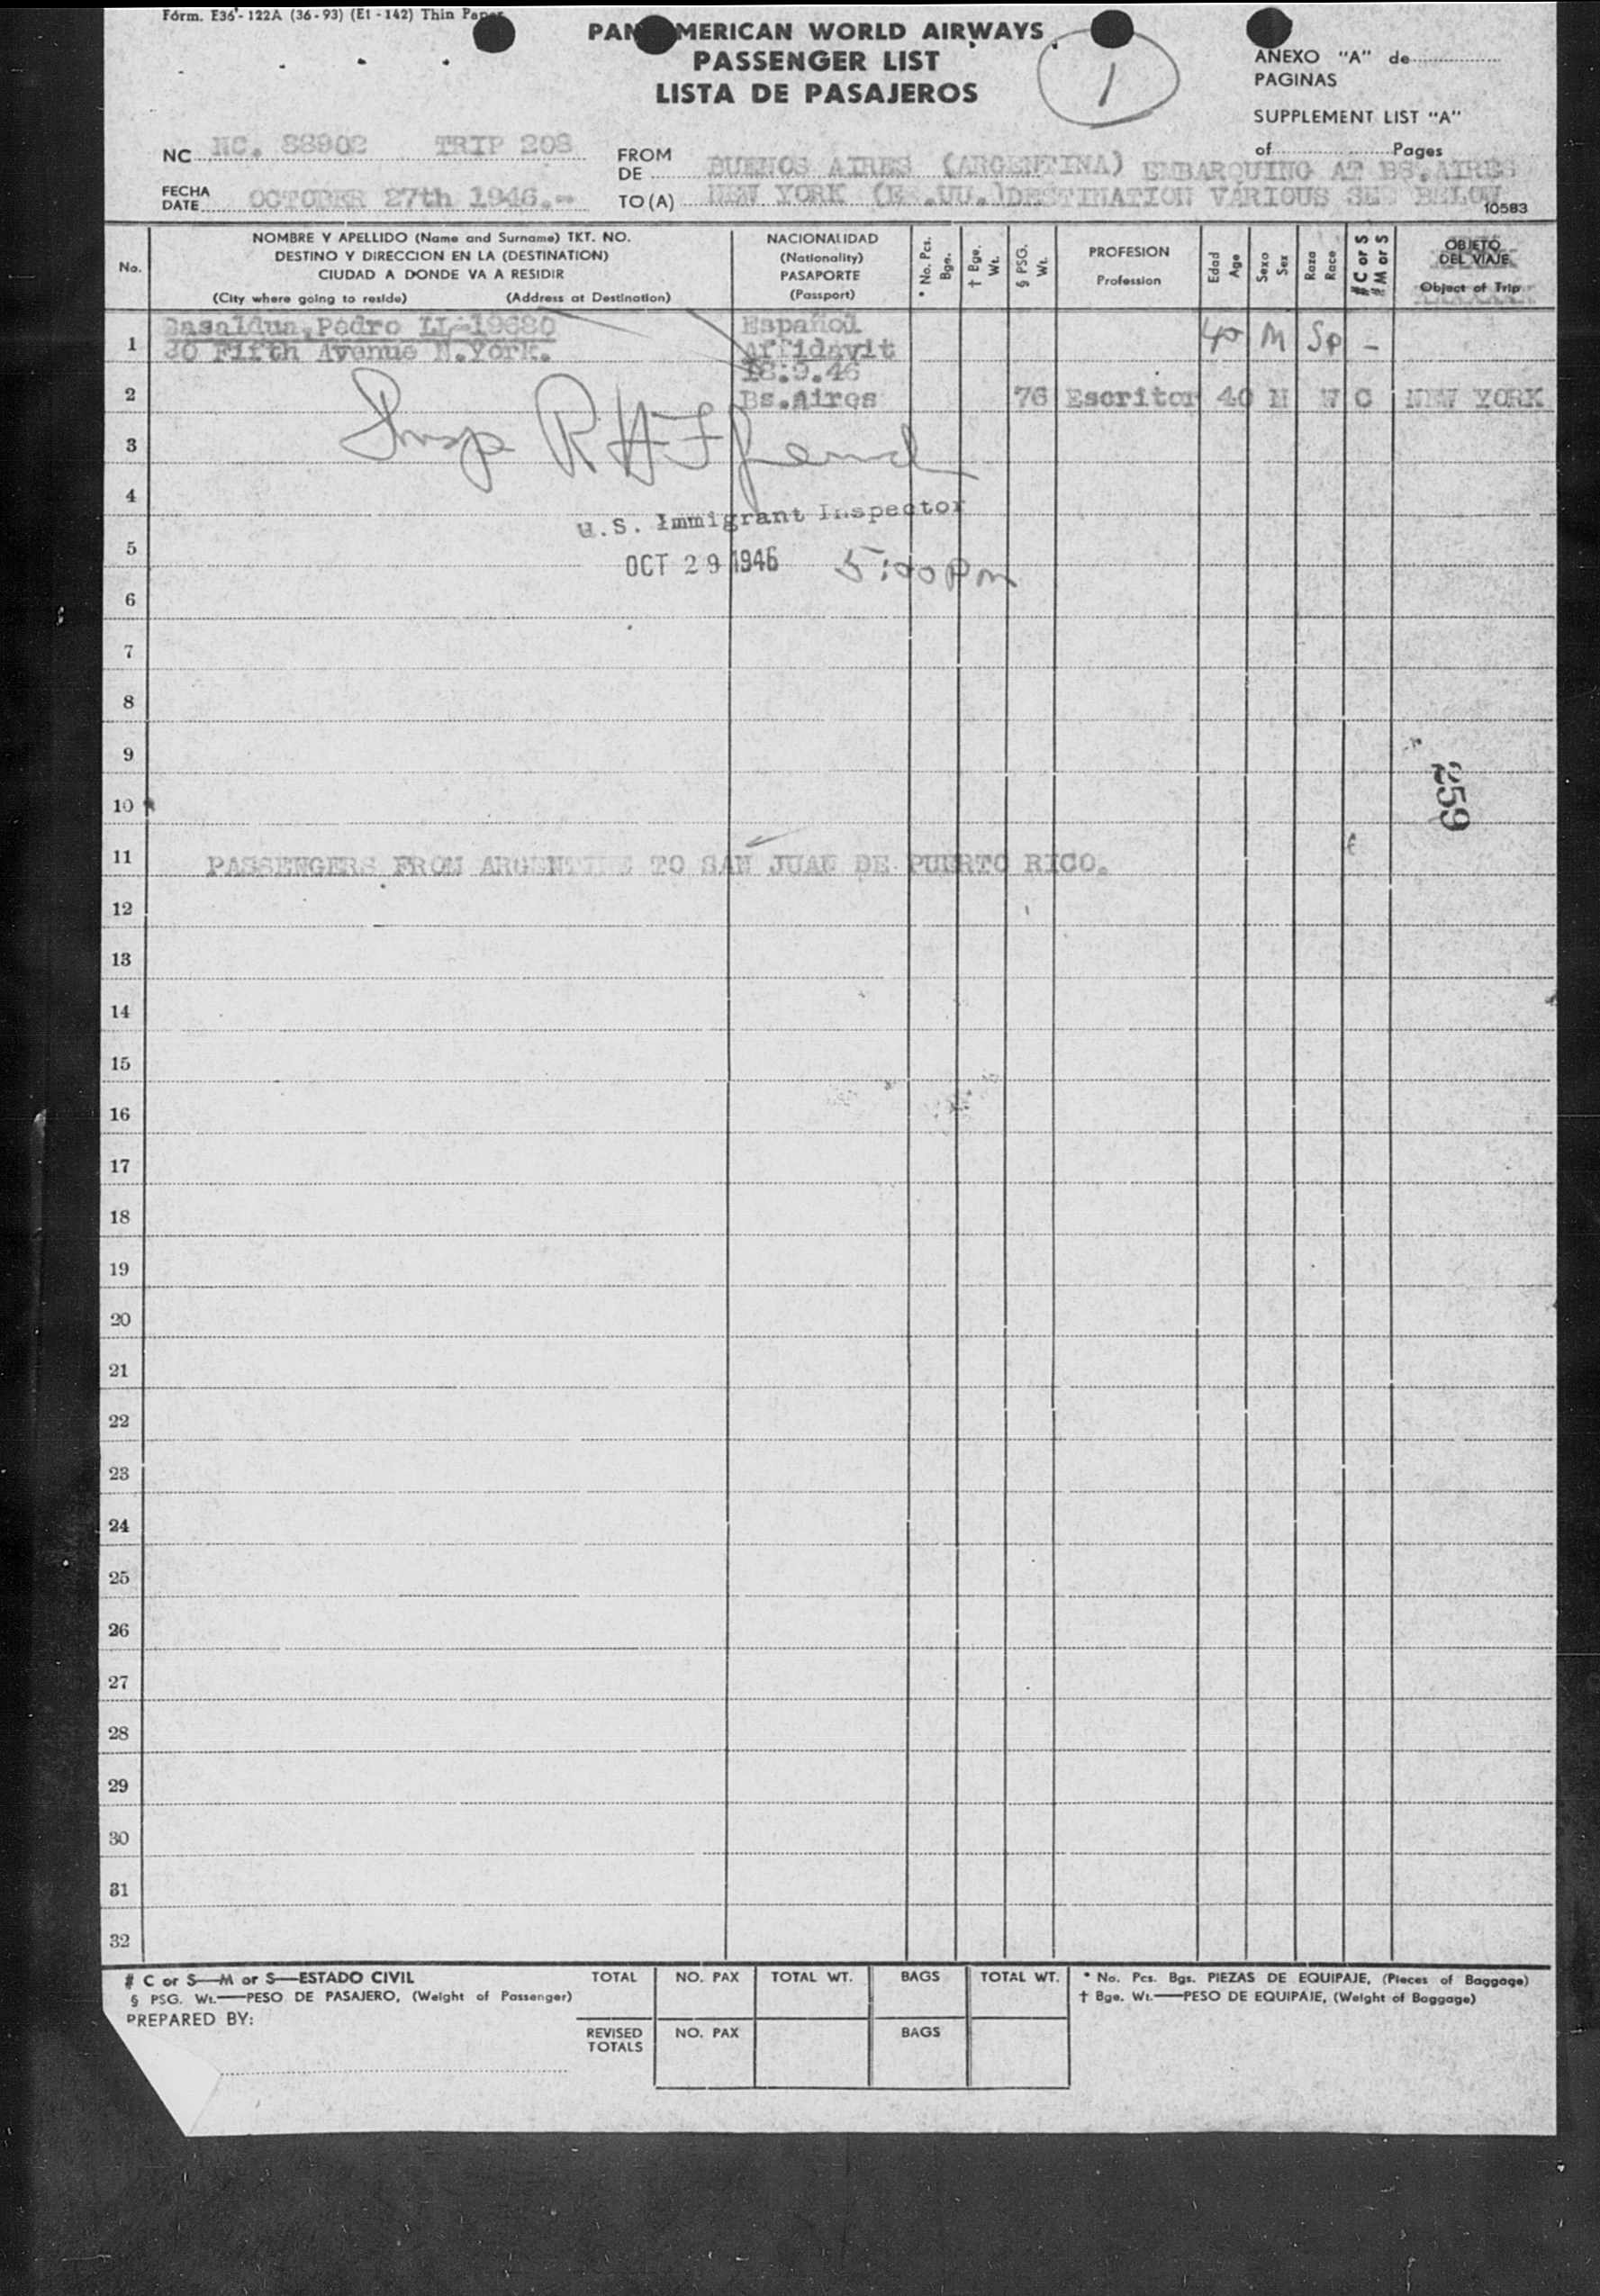 Form. E36-122A (36-93) (E1-142) Thin Paper
PAN AMERICAN WORLD AIRWAYS
PASSENGER LIST
LISTA DE PASAJEROS
1
ANEXO "A" de
PAGINAS
SUPPLEMENT LIST "A"
of Pages
NC NC. 88902 TRIP 208
FROM
DE BUENOS AIRES (ARGENTINA) EMBARQUING AT BS.AIRES
FECHA
DATE OCTOBER 27th 1946.-
TO (A) NEW YORK (EE.UU.) DESTINATION VARIOUS SEE BELOW
10583
No.
NOMBRE Y APELLIDO (Name and Surname) TKT. NO.
DESTINO Y DIRECCION EN LA (DESTINATION)
CIUDAD A DONDE VA A RESIDIR
(City where going to reside) (Address at Destination)
NACIONALIDAD
(Nationality)
PASAPORTE
(Passport)
* No. Pcs. Bge.
† Bge. Wt.
§ PSG. Wt.
PROFESION
Profession
Edad
Age
Sexo
Sex
Raza
Race
# C or S
# M or S
OBJETO
DEL VIAJE
Object of Trip
1 Basaldua, Pedro LL-19680 Español 40 M Sp -
30 Fifth Avenue N.York. Affidavit
18.9.46
2 Bs.Aires 76 Escritor 40 M W C NEW YORK
Insp R H
3
4
U.S. Immigrant Inspector
5
OCT 29 1946 5:00 pm
6
7
8
9
259
10
11 PASSENGERS FROM ARGENTINE TO SAN JUAN DE PUERTO RICO.
12
13
14
15
16
17
18
19
20
21
22
23
24
25
26
27
28
29
30
31
32
# C or S—M or S—ESTADO CIVIL
§ PSG. Wt.—PESO DE PASAJERO, (Weight of Passenger)
PREPARED BY:
TOTAL NO. PAX TOTAL WT. BAGS TOTAL WT.
REVISED TOTALS NO. PAX BAGS
* No. Pcs. Bgs. PIEZAS DE EQUIPAJE, (Pieces of Baggage)
† Bge. Wt.—PESO DE EQUIPAJE, (Weight of Baggage)